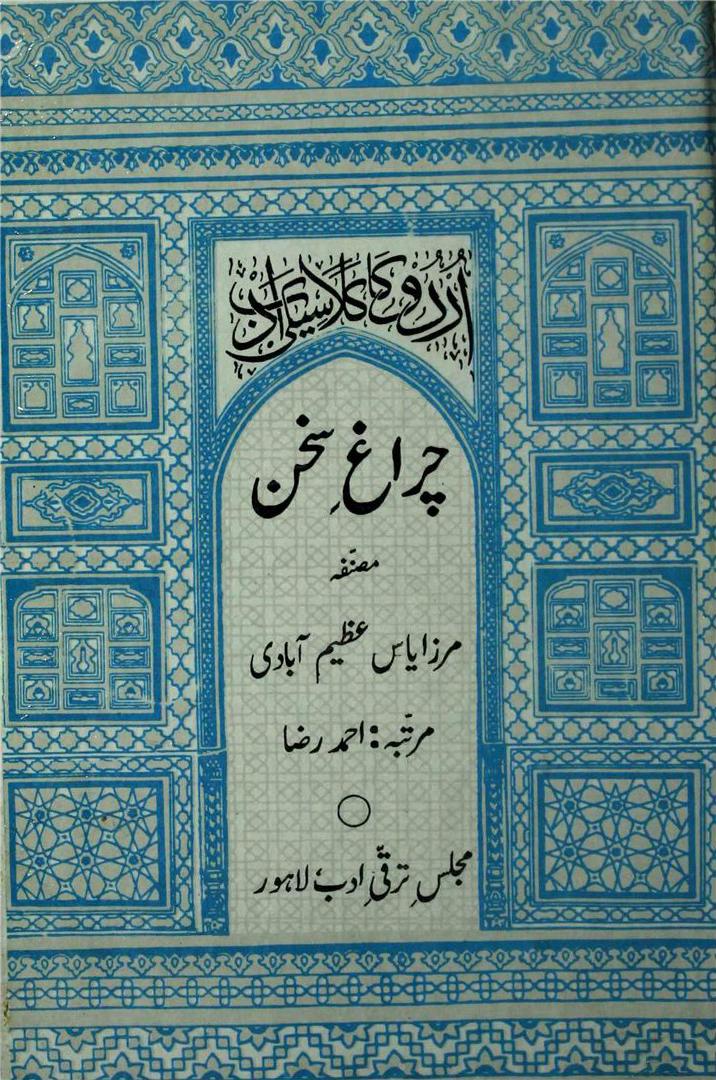 اُردو کا کلاسیکی ادب
چراغِ سخن
مصنّفہ
مرزا یاس عظیم آبادی
مرتّبہ : احمد رضا
مجلسِ ترقّیِ ادب، لاہور